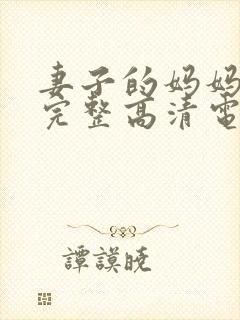 妻子的妈妈
完整高清电
譚謨晓